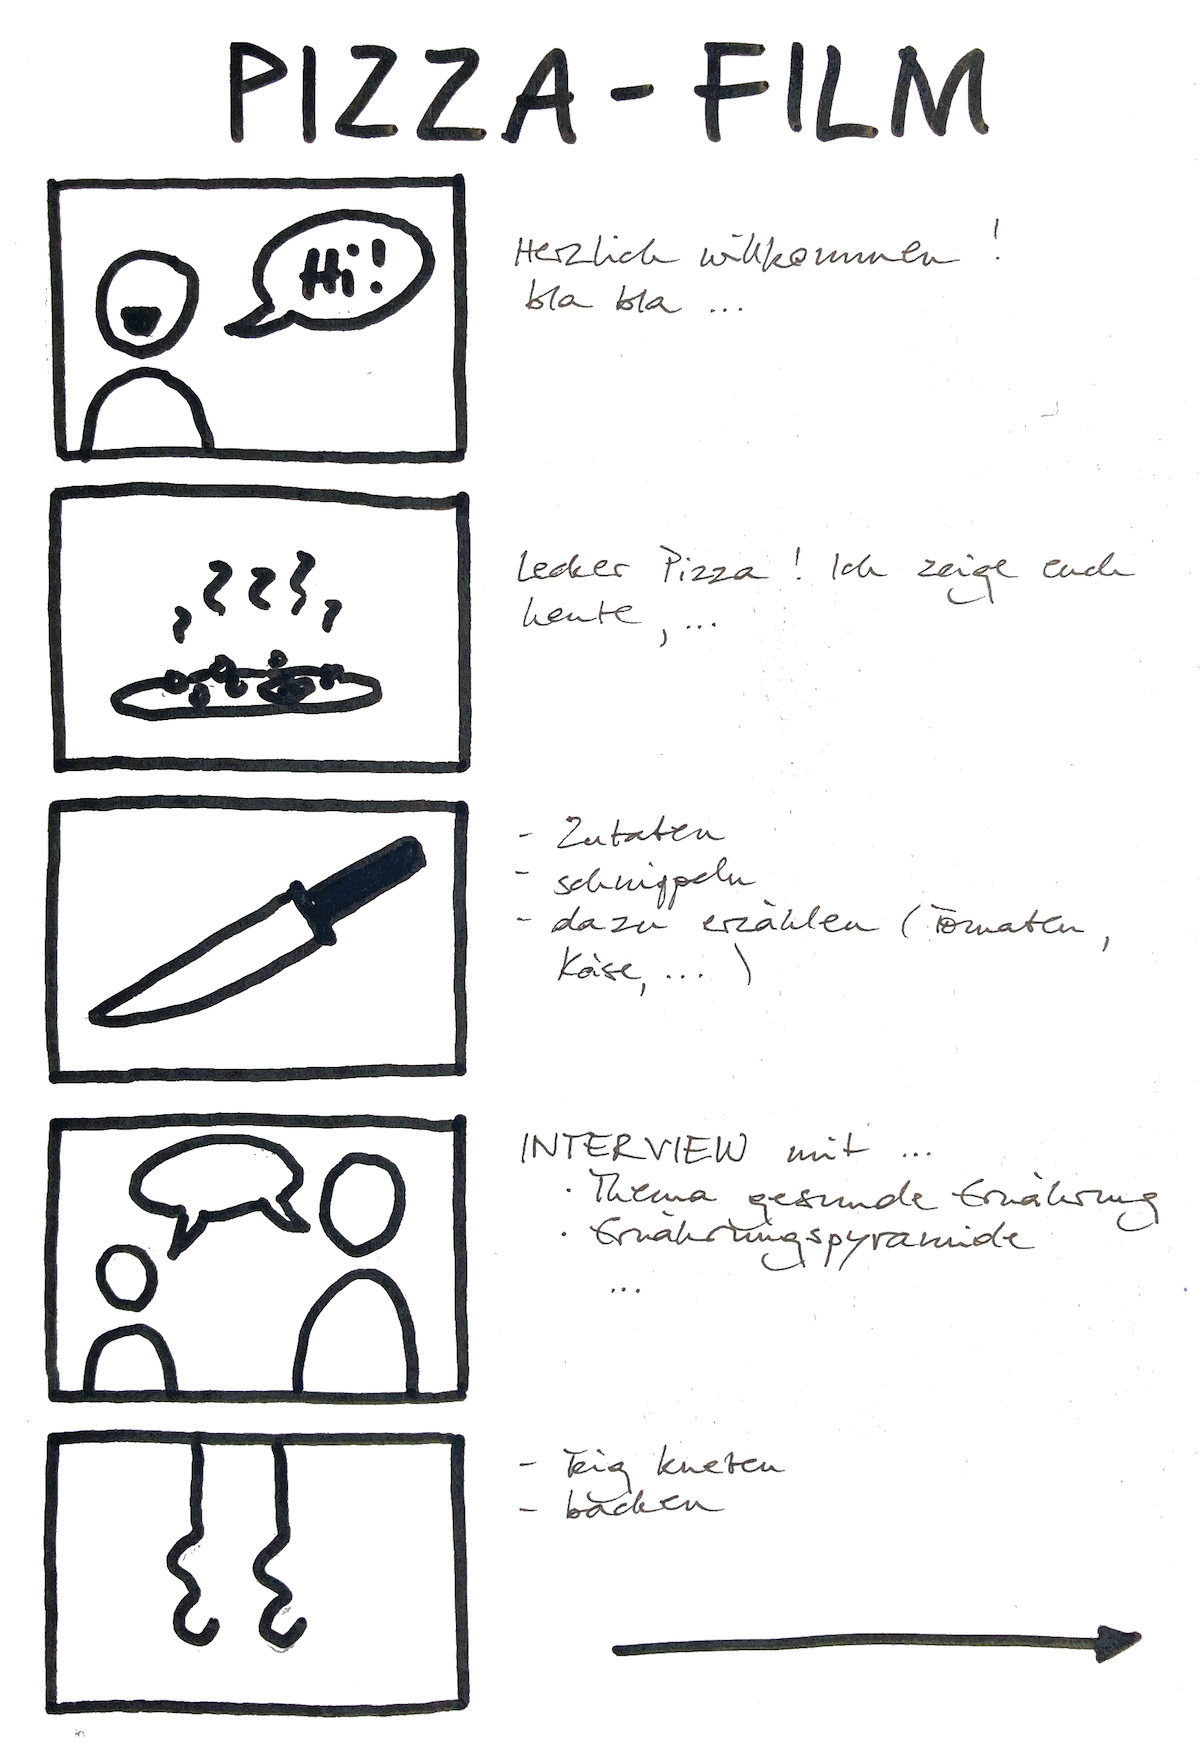 PIZZA-FILM
Hi!
Herzlich willkommen!
bla bla ...
Lecker Pizza! Ich zeige euch
heute, ...
- Zutaten
- schnippeln
- dazu erzählen (Tomaten,
Käse, ... )
INTERVIEW mit ...
· Thema gesunde Ernährung
· Ernährungspyramide
...
- Teig kneten
- backen